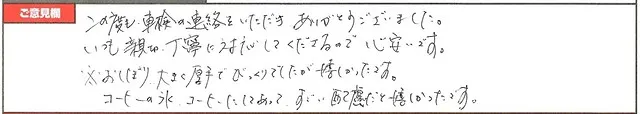 ご意見欄
この度も、車検の連絡をいただき ありがとうございました。
いつも 親切、丁寧に対応してくださるので 心安いです。
※おしぼり、大きく厚手でびっくりでしたが嬉しかったです。
コーヒーの氷、コーヒーだしてあって、すごい配慮だと嬉しかったです。